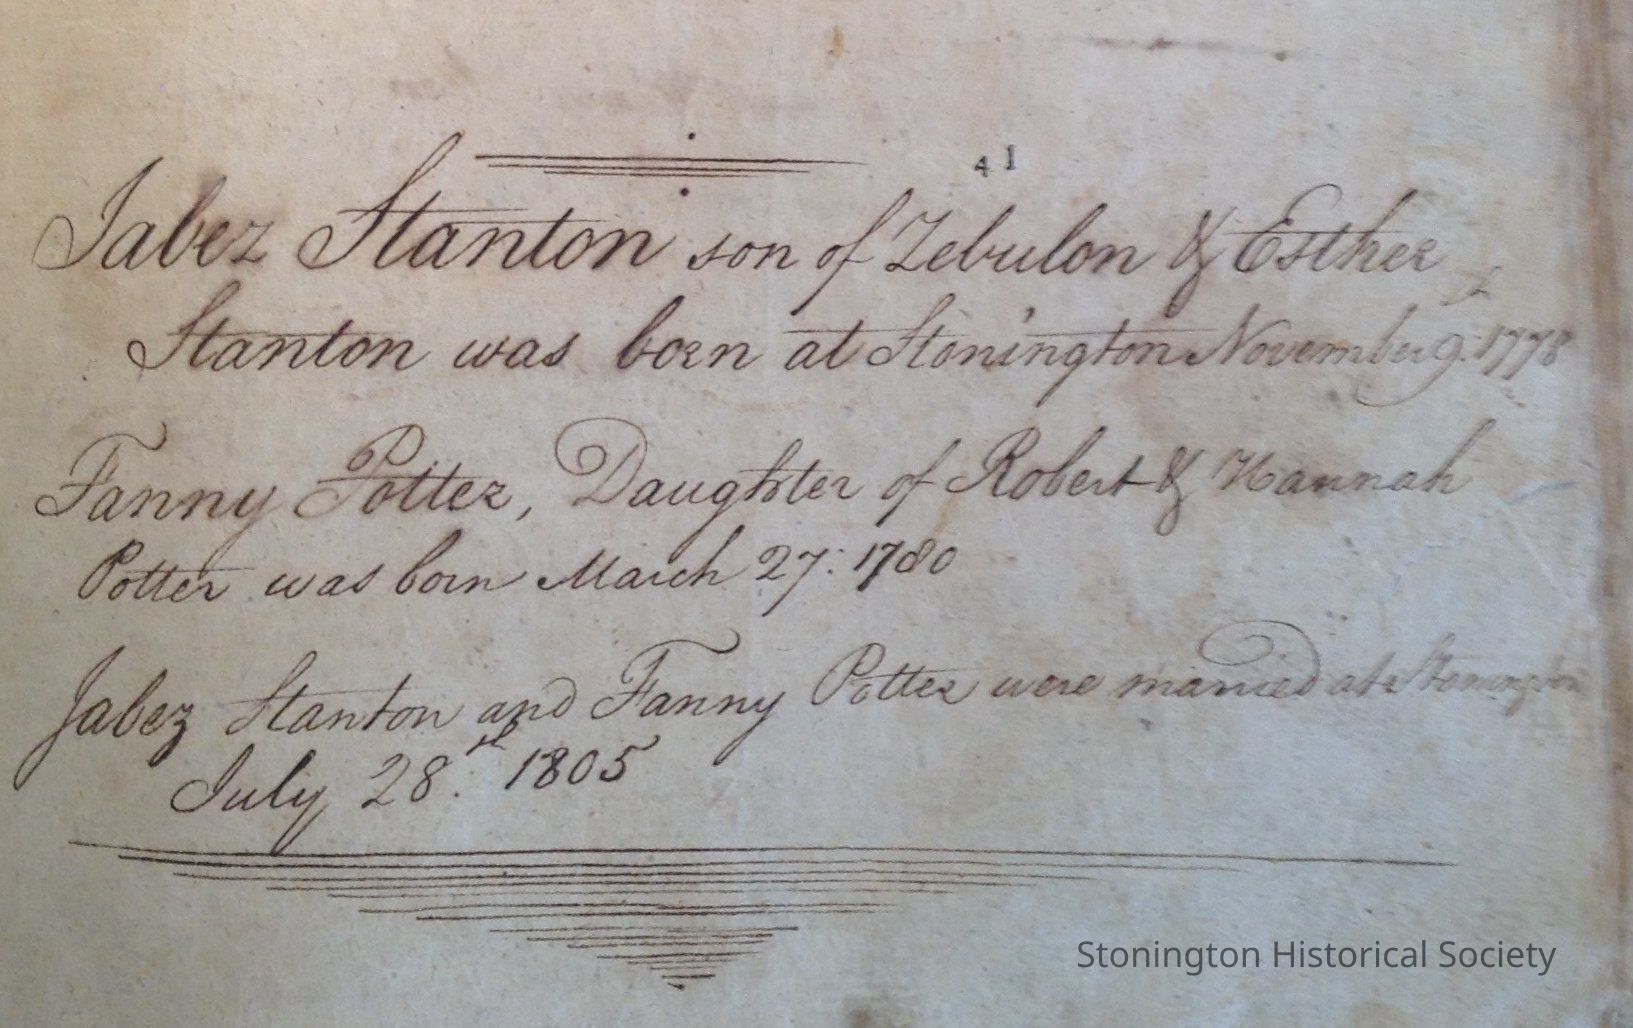 41
Jabez Stanton son of Zebulon & Esther
Stanton was born at Stonington November 9th 1778
Fanny Potter, Daughter of Robert & Hannah
Potter was born March 27: 1780
Jabez Stanton and Fanny Potter were married at Stonington
July 28.th 1805
Stonington Historical Society